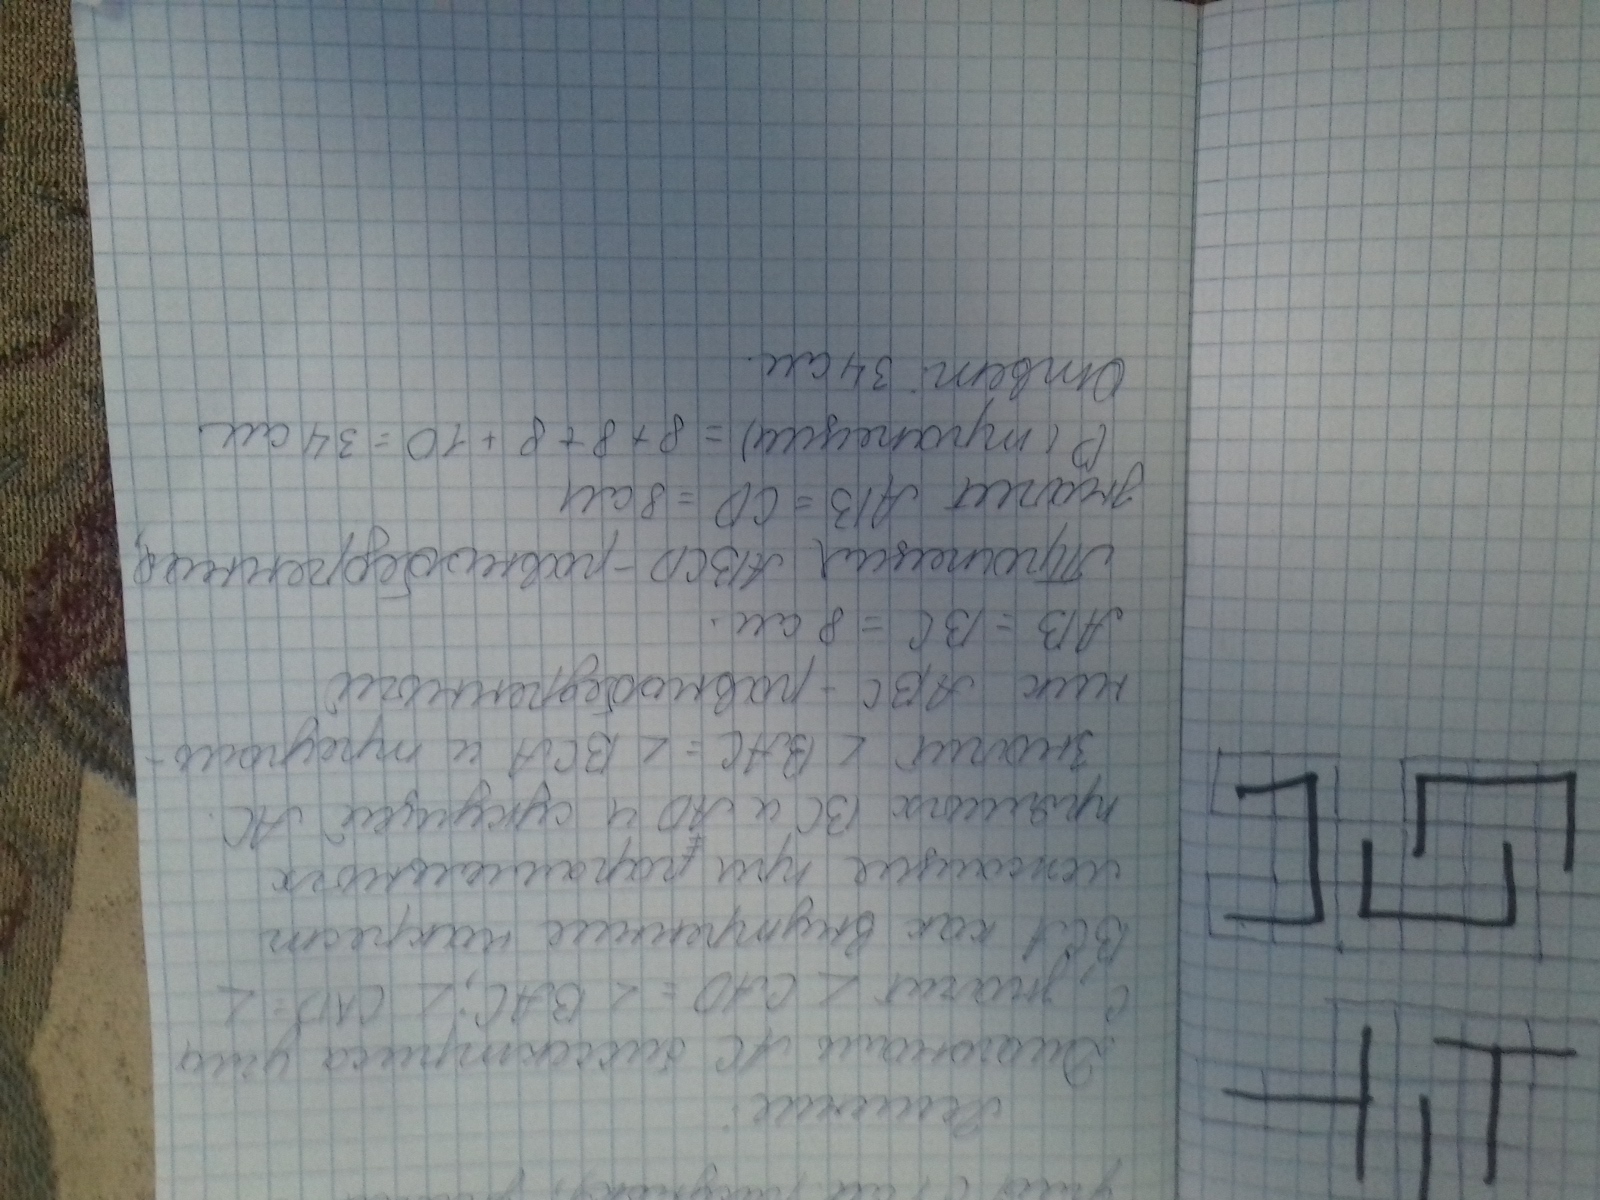 угла
Решение:
Диагональ АС биссектриса угла
С, значит ∠ CAD = ∠ BAC; ∠ CAD = ∠
BCA как внутренние накрест
лежащие при параллельных
прямых BC и AD и секущей AC.
Значит ∠ BAC = ∠ BCA и треуголь-
ник ABC - равнобедренный
AB = BC = 8 см.
Трапеция ABCD - равнобедренная,
значит AB = CD = 8 см
P (трапеции) = 8 + 8 + 8 + 10 = 34 см
Ответ: 34 см.